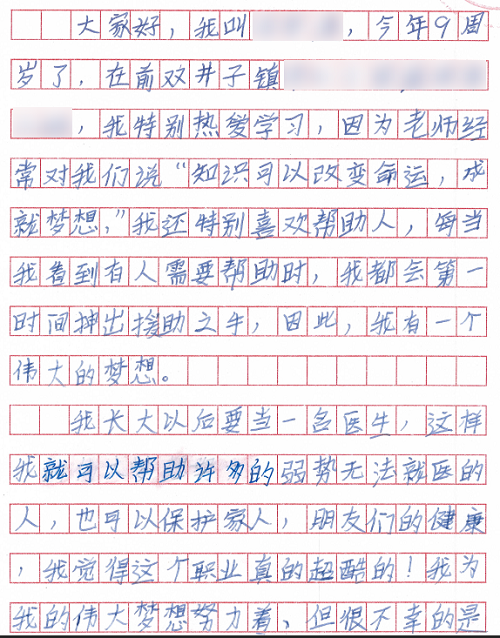 大家好，我叫，今年9周
岁了，在前双井子镇
，我特别热爱学习，因为老师经
常对我们说“知识可以改变命运，成
就梦想，”我还特别喜欢帮助人，每当
我看到有人需要帮助时，我都会第一
时间抻出援助之手，因此，我有一个
伟大的梦想。
我长大以后要当一名医生，这样
我就可以帮助许多的弱势无法就医的
人，也可以保护家人，朋友们的健康
，我觉得这个职业真的超酷的！我为
我的伟大梦想努力着，但很不幸的是